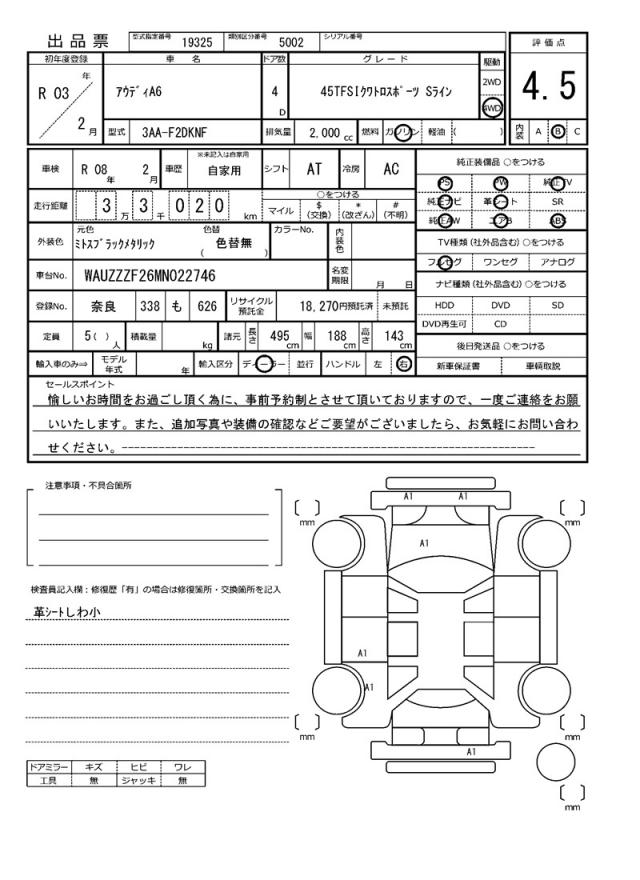 出品票 型式指定番号 19325 類別区分番号 5002 シリアル番号
評価点
4.5
内装 A B C
初年度登録 車名 ドア数 グレード 駆動
R 03 年 2 月
アウディA6
4 D
45TFSIクワトロスポーツ Sライン
2WD
4WD
型式 3AA-F2DKNF 排気量 2,000 cc 燃料 ガソリン 軽油 ( )
車検 R 08 年 2 月 車歴 ※未記入は自家用 自家用 シフト AT 冷房 AC
走行距離 3 万 3 千 0 2 0 km
○をつける
マイル $ (交換) * (改ざん) # (不明)
外装色 元色 ミトスブラックメタリック 色替 ( 色替無 ) カラーNo. 内装色
車台No. WAUZZZF26MN022746 名変期限 月 日
登録No. 奈良 338 も 626 リサイクル預託金 18,270円預託済 未預託
定員 5( ) 人 積載量 kg 諸元 長さ 495 cm 幅 188 cm 高さ 143 cm
輸入車のみ⇒ モデル年式 年 輸入区分 ディーラー 並行 ハンドル 左 右
純正装備品 ○をつける
PS PW 純正TV
純正ナビ 革シート SR
純正AW エアB ABS
TV種類(社外品含む)○をつける
フルセグ ワンセグ アナログ
ナビ種類(社外品含む)○をつける
HDD DVD SD
DVD再生可 CD
後日発送品 ○をつける
新車保証書 車輌取説
セールスポイント
愉しいお時間をお過ごし頂く為に、事前予約制とさせて頂いておりますので、一度ご連絡をお願
いいたします。また、追加写真や装備の確認などご要望がございましたら、お気軽にお問い合わ
せください。
注意事項・不具合箇所
検査員記入欄：修復歴「有」の場合は修復箇所・交換箇所を記入
革シートしわ小
ドアミラー キズ ヒビ ワレ
工具 無 ジャッキ 無
A1 A1
mm mm
A1
A1
A1
mm mm
A1
mm